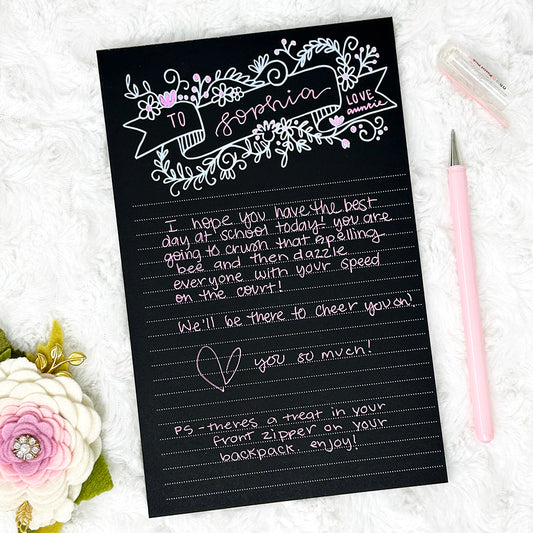 TO
sophia
LOVE
auntie
I hope you have the best
day at school today! you are
going to crush that spelling
bee and then dazzle
everyone with your speed
on the court!
We'll be there to cheer you on!
you so much!
PS - theres a treat in your
front zipper on your
backpack. enjoy!